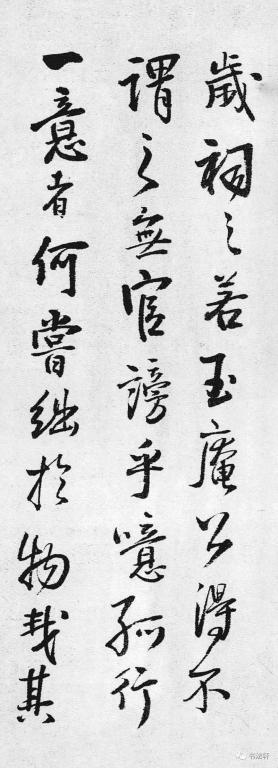 歲祠之若玉庵公得不
謂之無官謗乎噫孤行
一意者何嘗絀於物哉其
书法轩